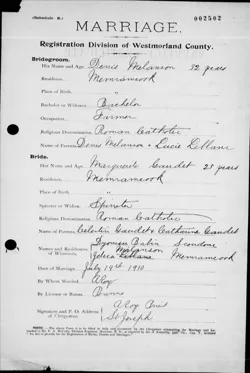 (Schedule B.)
002502
MARRIAGE.
Registration Division of Westmorland County.
Bridegroom.
His Name and Age, Denis Melanson 32 years
Residence, Memramcook
Place of Birth, "
Bachelor or Widower, Bachelor
Occupation, Farmer
Religious Denomination, Roman Catholic
Name of Parents, Denis Melanson & Lucie LeBlanc
Bride.
Her Name and Age, Marguerite Gaudet 21 years
Residence, Memramcook
Place of Birth, "
Spinster or Widow, Spinster
Religious Denomination, Roman Catholic
Name of Parents, Celestin Gaudet & Catherine Gaudet
Names and Residences of Witnesses, Babin Scoudouc
Melanson Memramcook
Date of Marriage, July 19th 1910
By Whom Married, A Roy
By License or Banns, Banns
Signature and P. O. Address of Clergyman, A Roy
St Joseph